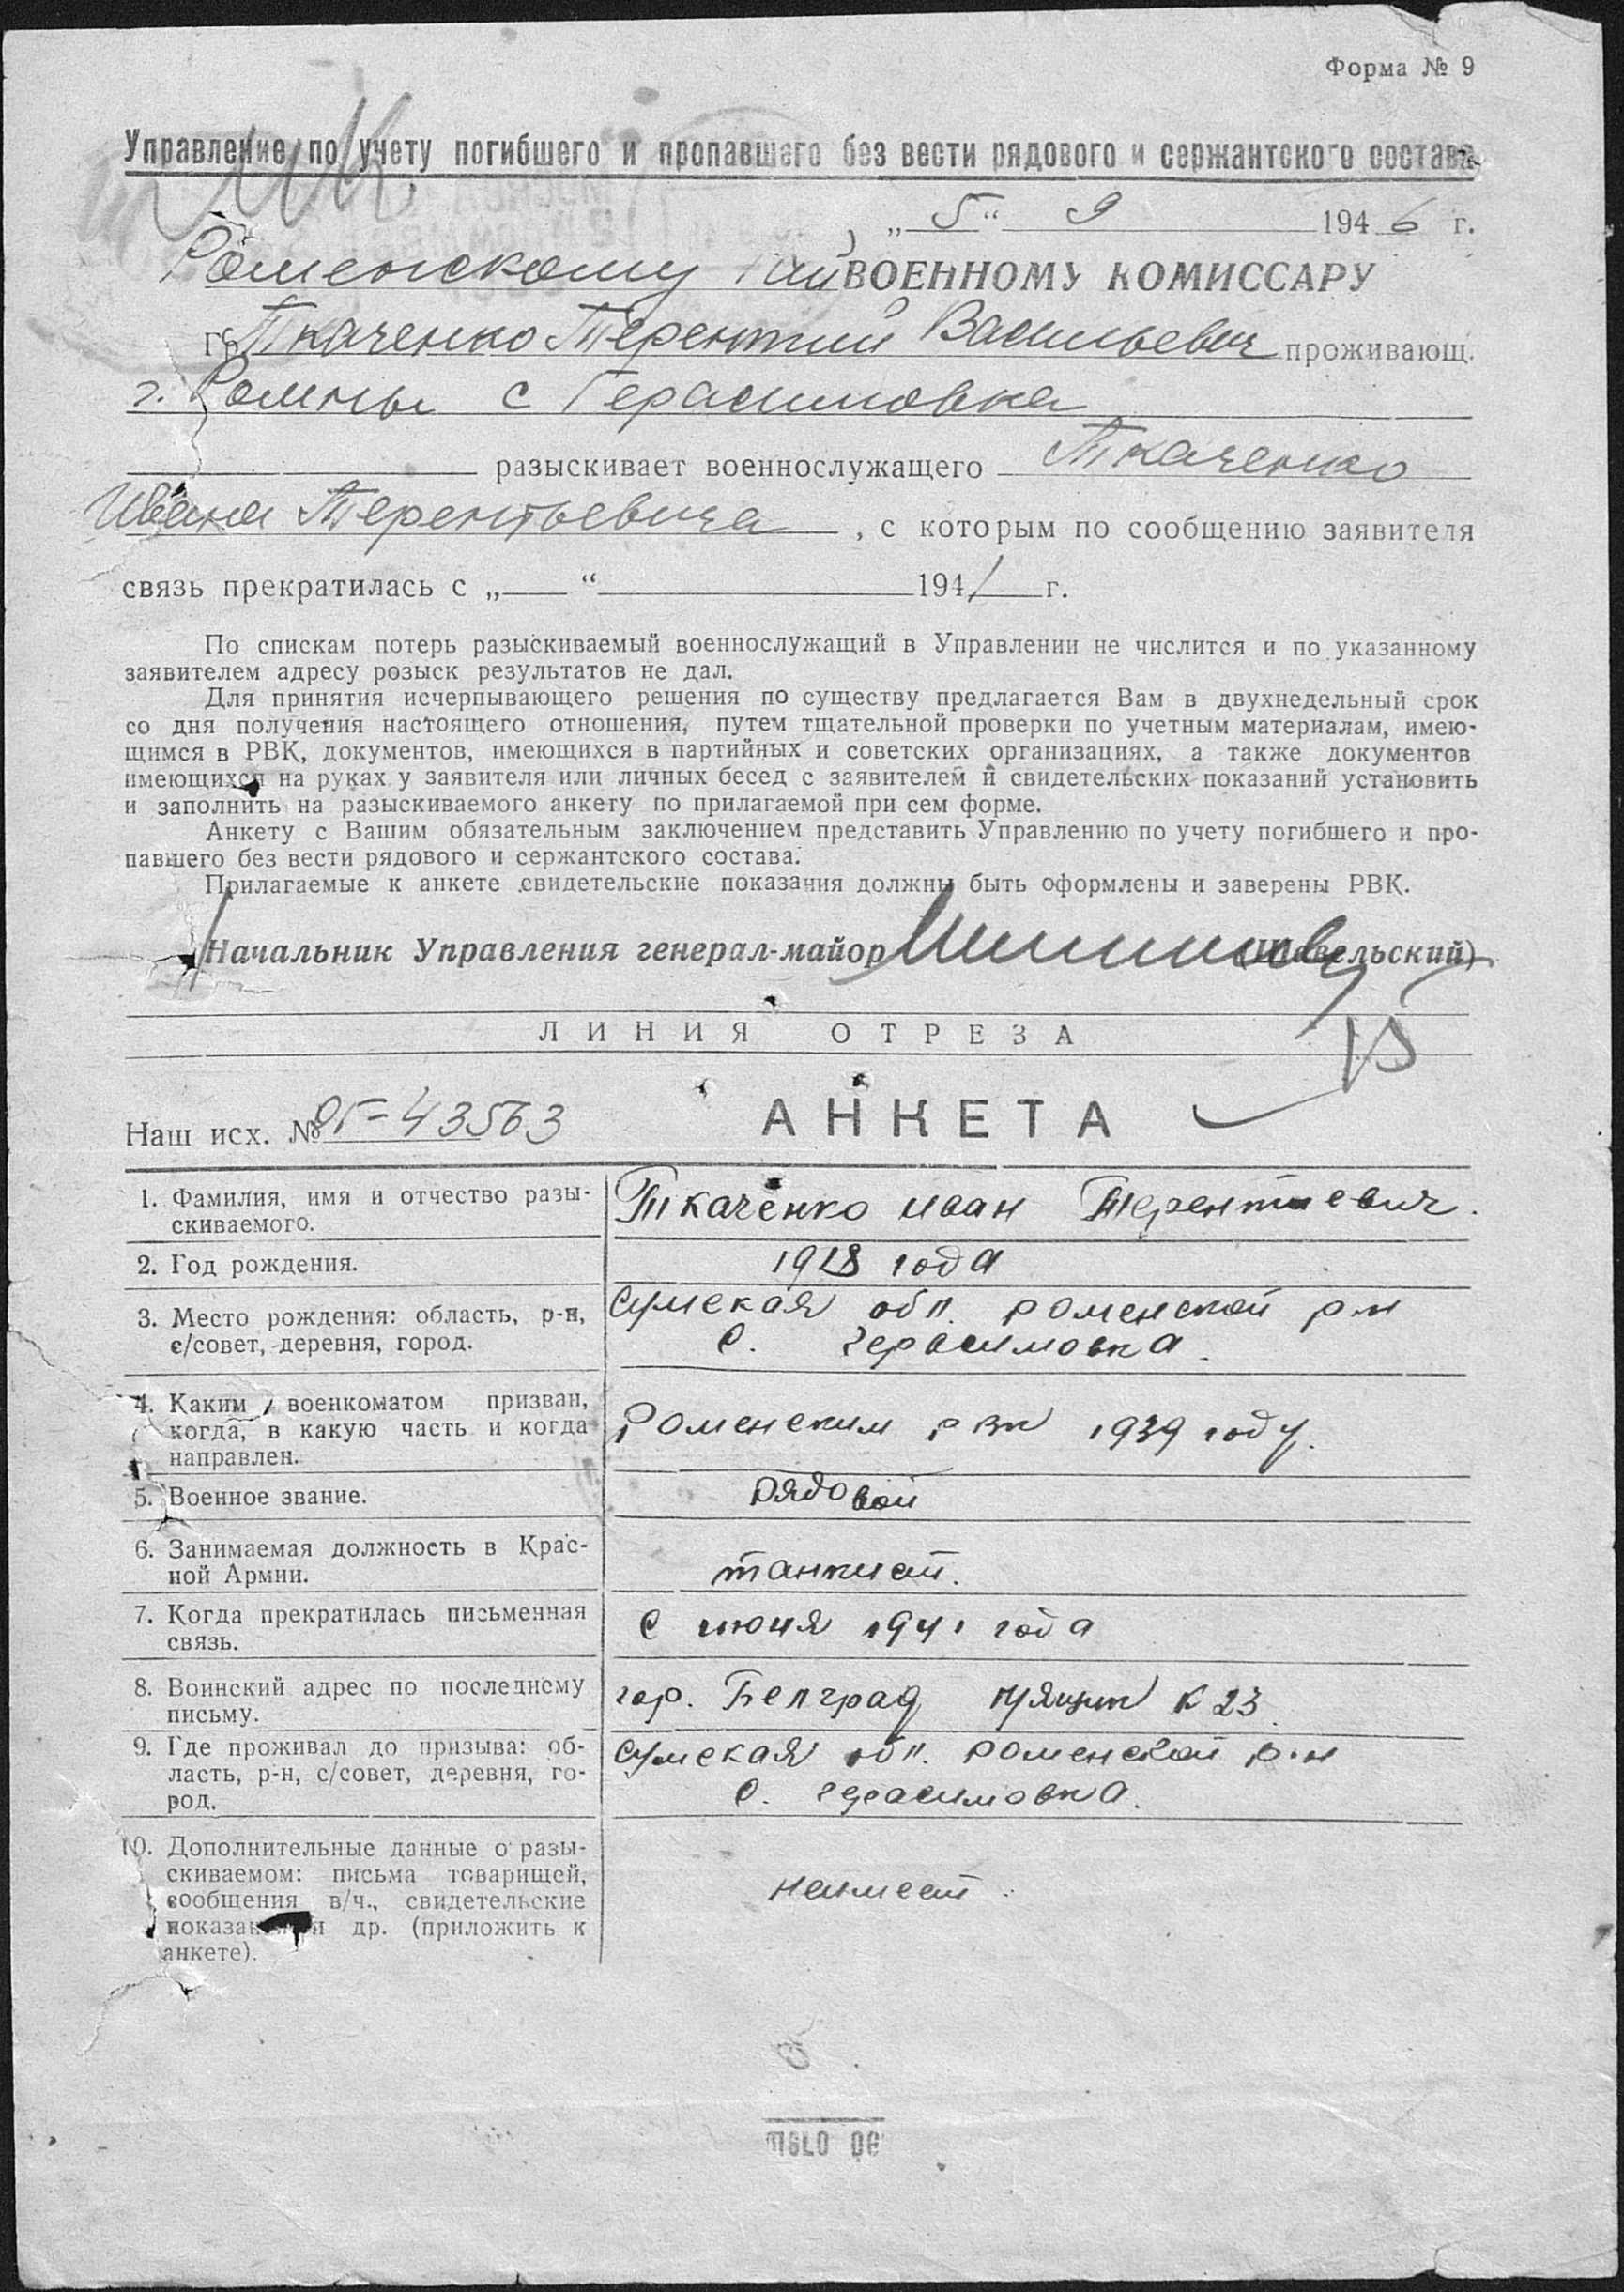 Форма № 9
Управление по учету погибшего и пропавшего без вести рядового и сержантского состава
„ 5 “ 9 1946 г.
Роменскому Рай ВОЕННОМУ КОМИССАРУ
гр. Ткаченко Терентий Васильевич проживающ.
г. Ромны с Герасимовка
разыскивает военнослужащего Ткаченко
Ивана Терентьевича , с которым по сообщению заявителя
связь прекратилась с „ “ 1941 г.
По спискам потерь разыскиваемый военнослужащий в Управлении не числится и по указанному
заявителем адресу розыск результатов не дал.
Для принятия исчерпывающего решения по существу предлагается Вам в двухнедельный срок
со дня получения настоящего отношения, путем тщательной проверки по учетным материалам, имею-
щимся в РВК, документов, имеющихся в партийных и советских организациях, а также документов
имеющихся на руках у заявителя или личных бесед с заявителем и свидетельских показаний установить
и заполнить на разыскиваемого анкету по прилагаемой при сем форме.
Анкету с Вашим обязательным заключением представить Управлению по учету погибшего и про-
павшего без вести рядового и сержантского состава.
Прилагаемые к анкете свидетельские показания должны быть оформлены и заверены РВК.
Начальник Управления генерал-майор (Шавельский)
ЛИНИЯ ОТРЕЗА
Наш исх. № 43563 АНКЕТА
1. Фамилия, имя и отчество разы-
скиваемого.
Ткаченко иван Терентиевич.
2. Год рождения.
1918 года
3. Место рождения: область, р-н,
с/совет, деревня, город.
Сумская обл. роменской р-н
с. герасимовка.
4. Каким военкоматом призван,
когда, в какую часть и когда
направлен.
Роменским рвк 1939 году.
5. Военное звание.
рядовой
6. Занимаемая должность в Крас-
ной Армии.
танкист.
7. Когда прекратилась письменная
связь.
с июня 1941 года
8. Воинский адрес по последнему
письму.
гор. Белград п/ящик К 23.
9. Где проживал до призыва: об-
ласть, р-н, с/совет, деревня, го-
род.
Сумская обл. роменской р-н
с. герасимовка.
10. Дополнительные данные о разы-
скиваемом: письма товарищей,
сообщения в/ч., свидетельские
показания и др. (приложить к
анкете).
неимеет.